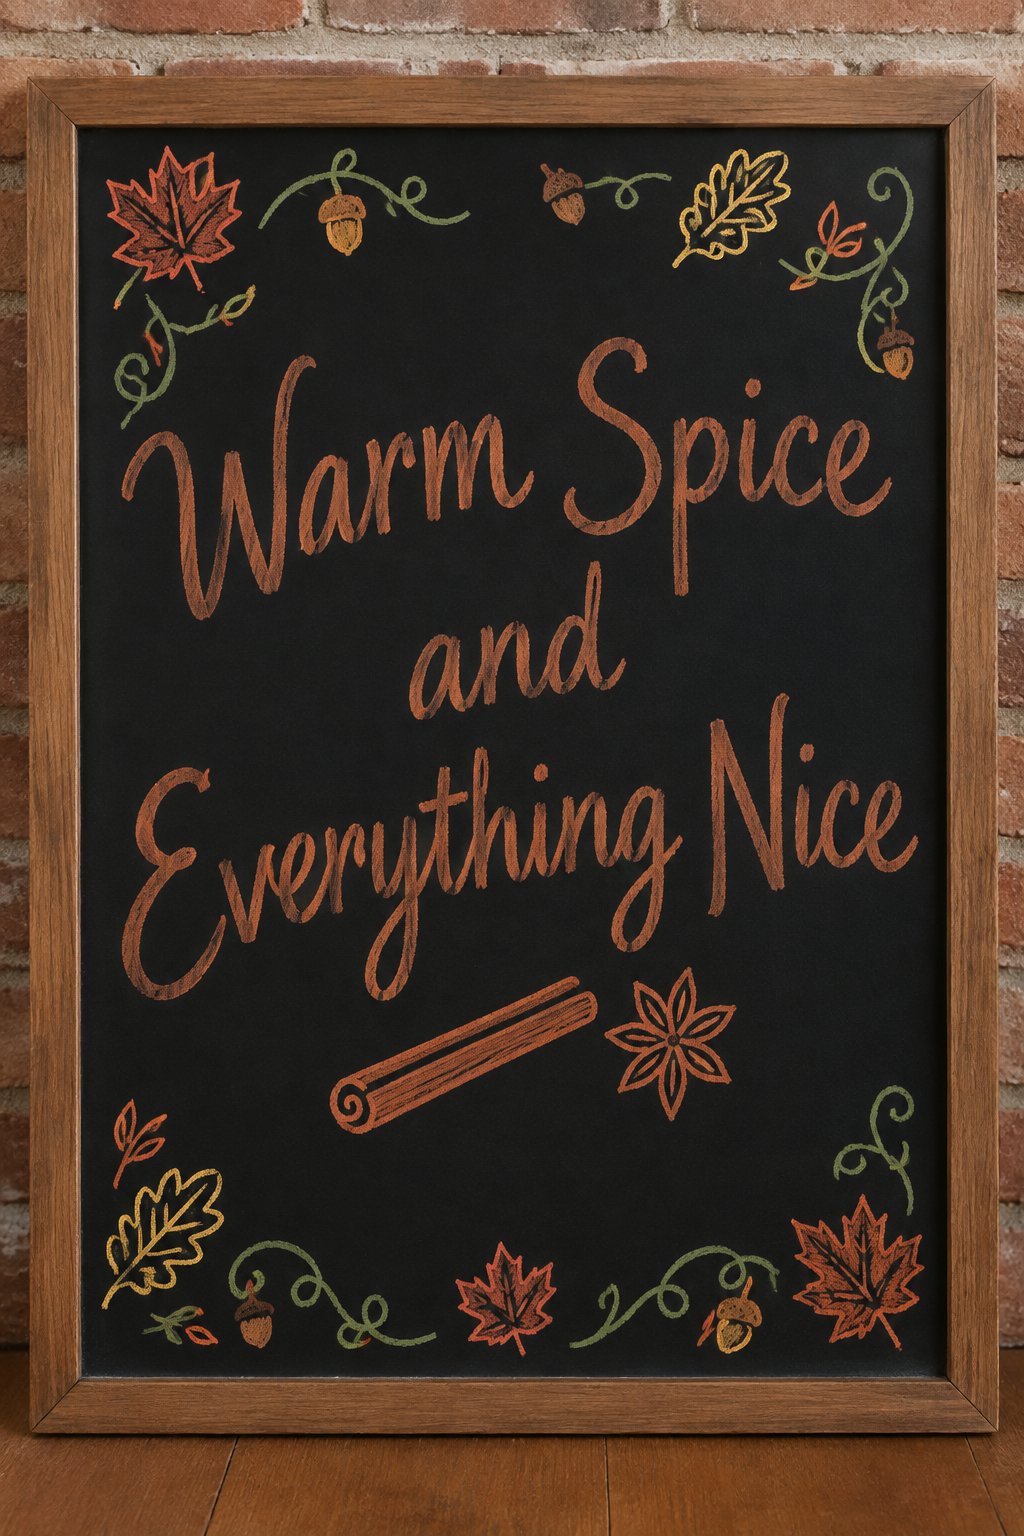 Warm Spice
and
Everything Nice